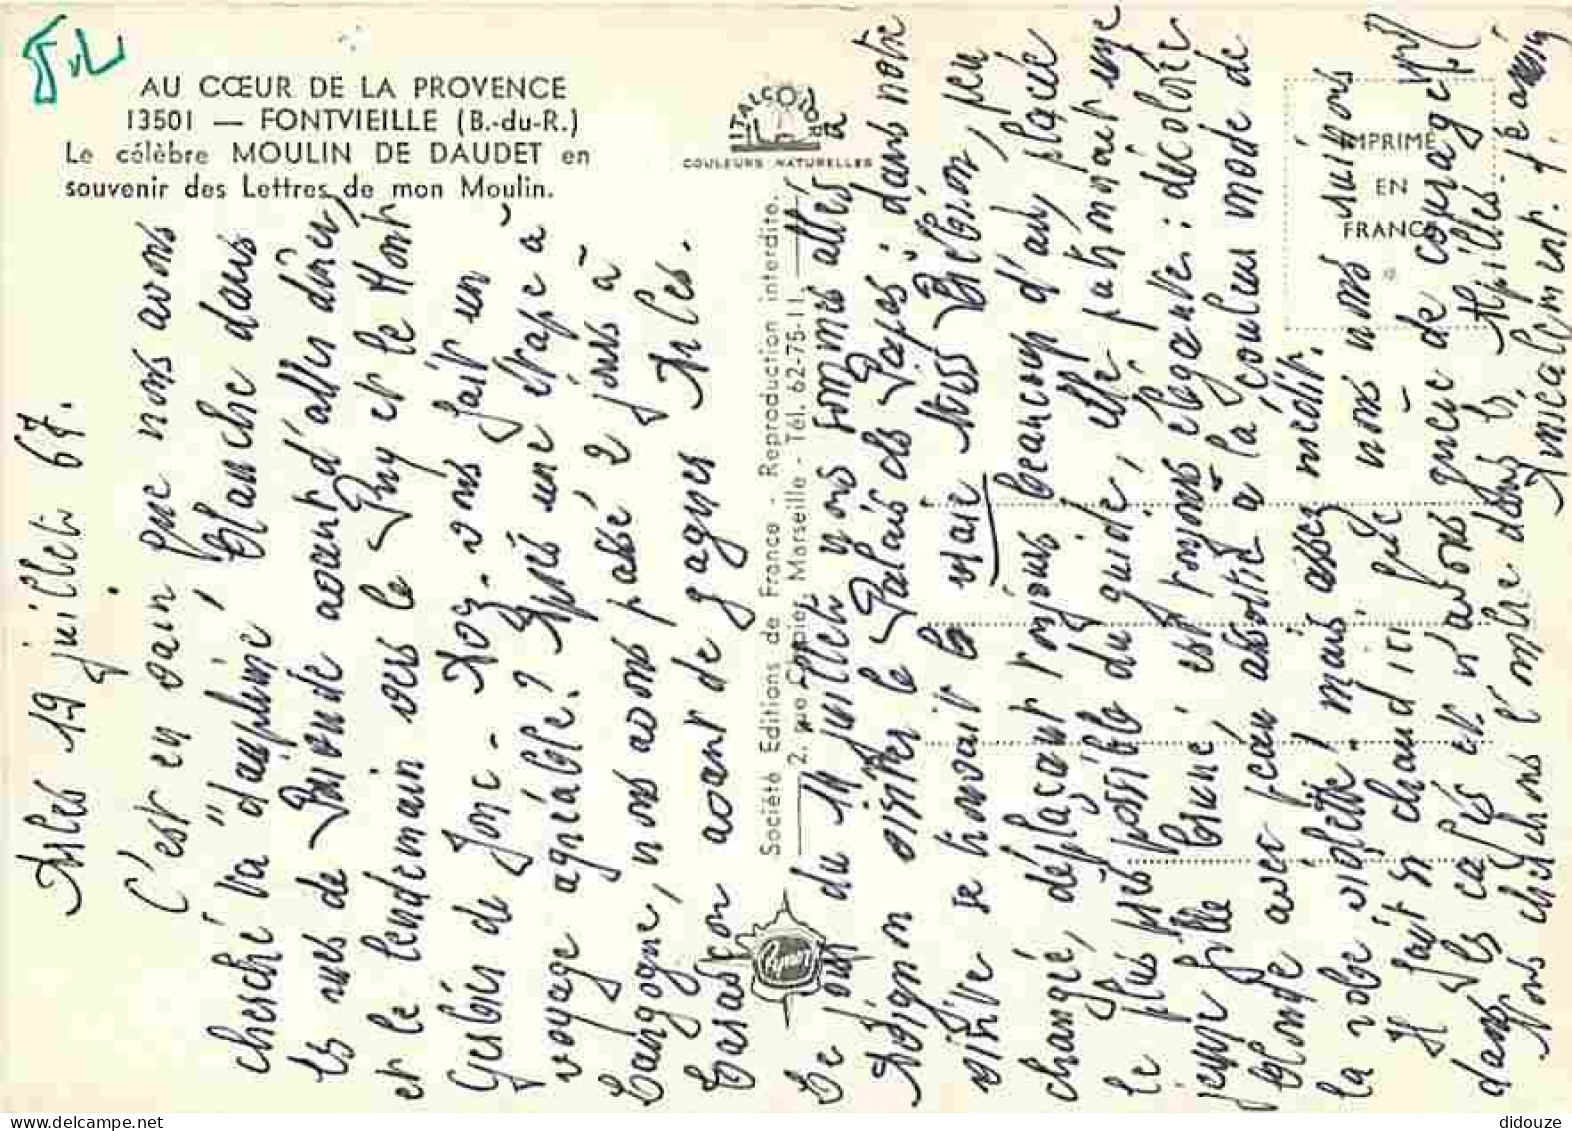 AU CŒUR DE LA PROVENCE
13501 — FONTVIEILLE (B.-du-R.)
Le célèbre MOULIN DE DAUDET en
souvenir des Lettres de mon Moulin.
ITALCOLOR
COULEURS NATURELLES
IMPRIMÉ
EN
FRANCE
Société Editions de France - Reproduction interdite.
2, rue Marseille - Tél. 62-75-11.
Arles 19 juillet 67.
C'est en vain que nous avons
cherché la dauphine blanche dans
les rues de Brioude avant d'aller dîner,
et le lendemain vers le Puy et le Mont
Gerbier de Jonc - Avez-vous fait un
voyage agréable? Après une étape à
Langogne, nous avons passé 2 jours à
Tarascon avant de gagner Arles.
Le soir du 14 juillet nous sommes allés à
Avignon visiter le Palais des Papes: dans notre
visite se trouvait la vraie Miss Berbion, peu
changée, déplaçant toujours beaucoup d'air, placée
le plus près possible du guide, elle patronnait une
jeune fille brune; est toujours élégante: décolorée
blonde avec assortie à la couleur mode de
la robe violette! mais assez inédit.
Il fait si chaud ici que nous nous suivons
dans les cafés et n'avons guère de courage
Nous cherchons l'ombre dans les Alpilles.
Amicalement.
didouze